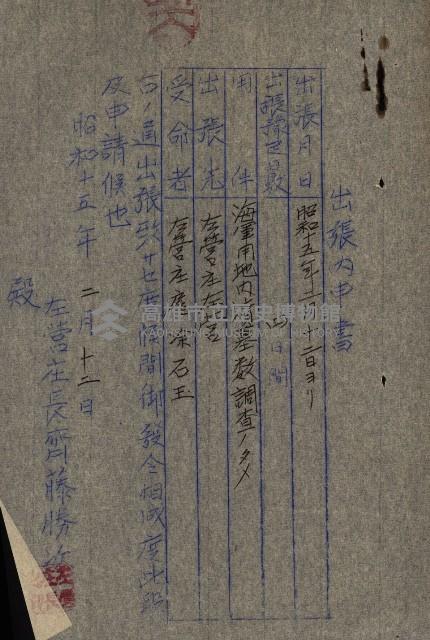 出張内申書
出張月日 昭和十五年二月十二日ヨリ
出張豫定日數 日間
用件 海軍用地内 墓数調査ノタメ
出張先 左營庄左營
受命者 左營庄 石玉
右ノ通出張致サセ度候間御發令相成度此段
及申請候也
昭和十五年二月十二日
左營庄長齊藤勝
殿
高雄市立歷史博物館
KAOHSIUNG MUSEUM OF HISTORY